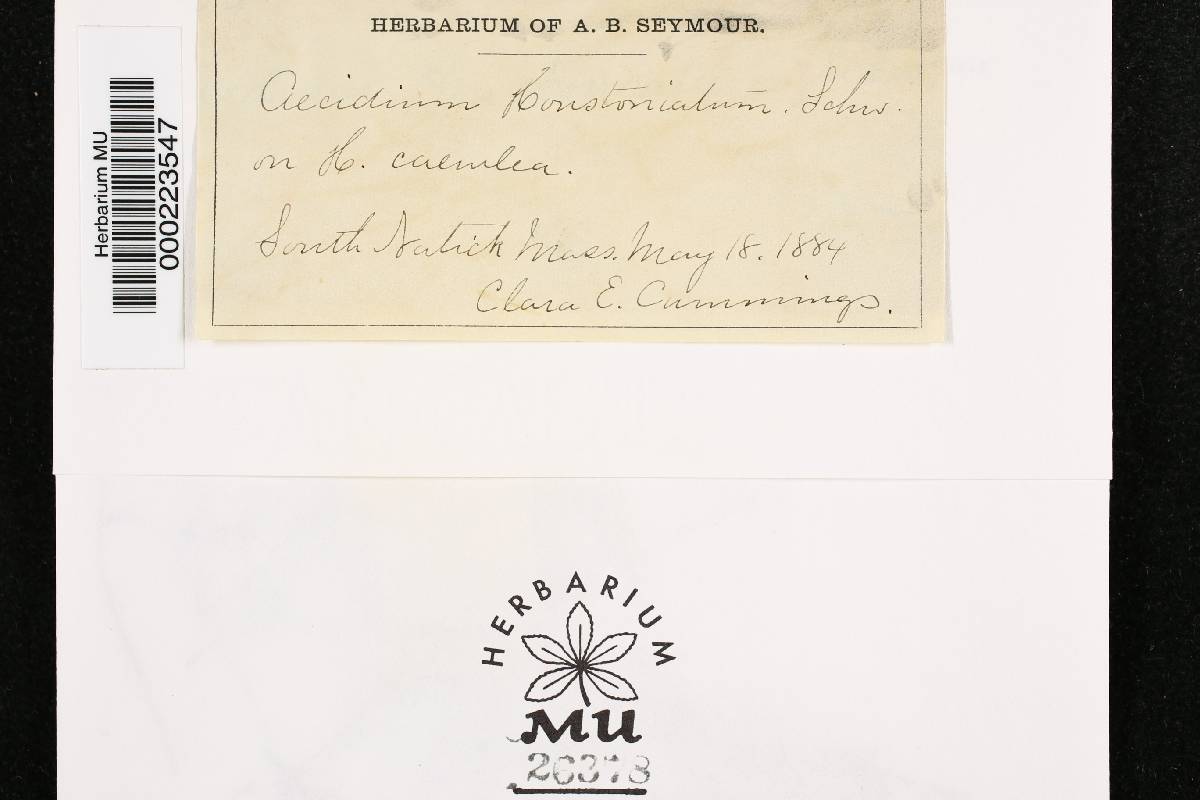 HERBARIUM OF A. B. SEYMOUR.
Aecidium Houstoniatum. Schw.
on H. caerulea.
South Natick Mass. May 18. 1884
Clara E. Cummings.
Herbarium MU
000223547
HERBARIUM
MU
26378